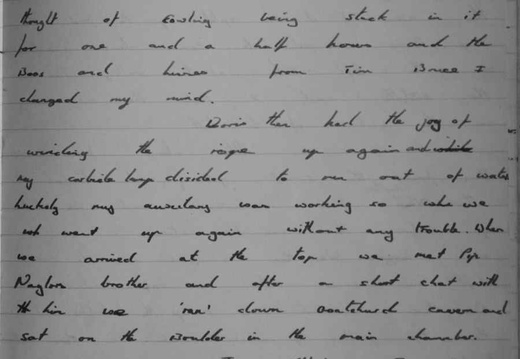 thought of Cowling being stuck in it
for one and a half hours and the
Boos and hisses from Tim Bruce I
changed my mind.
Doris then had the joy of
winding the rope up again and while
my carbide lamp decided to run out of water
luckely my auxulary was working so when we
we went up again without any trouble. When
we arrived at the top we met Pip
Naylors brother and after a short chat with
him we 'ran' down Goatchurch cavern and
sat on the Boulder in the main chamber.